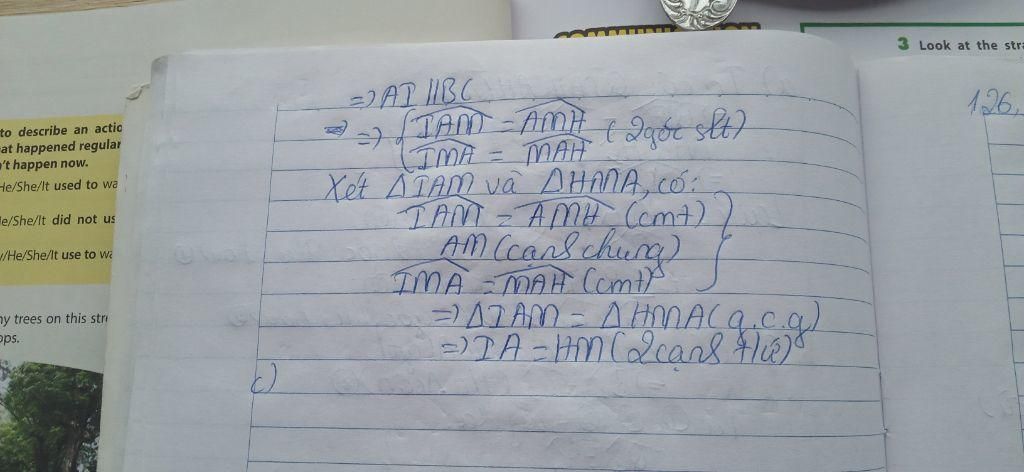 COMMUNICATION
3 Look at the str
to describe an actio
at happened regular
n't happen now.
He/She/It used to wa
e/She/It did not us
/He/She/It use to wa
ny trees on this str
ops.
126,
=> AI // BC
=> { IAM = AMH (2 góc slt)
IMA = MAH
Xét ΔIAM và ΔHMA, có:
IAM = AMH (cmt)
AM (cạnh chung)
IMA = MAH (cmt)
=> ΔIAM = ΔHMA (g.c.g)
=> IA = HM (2 cạnh t/ứ)
c)